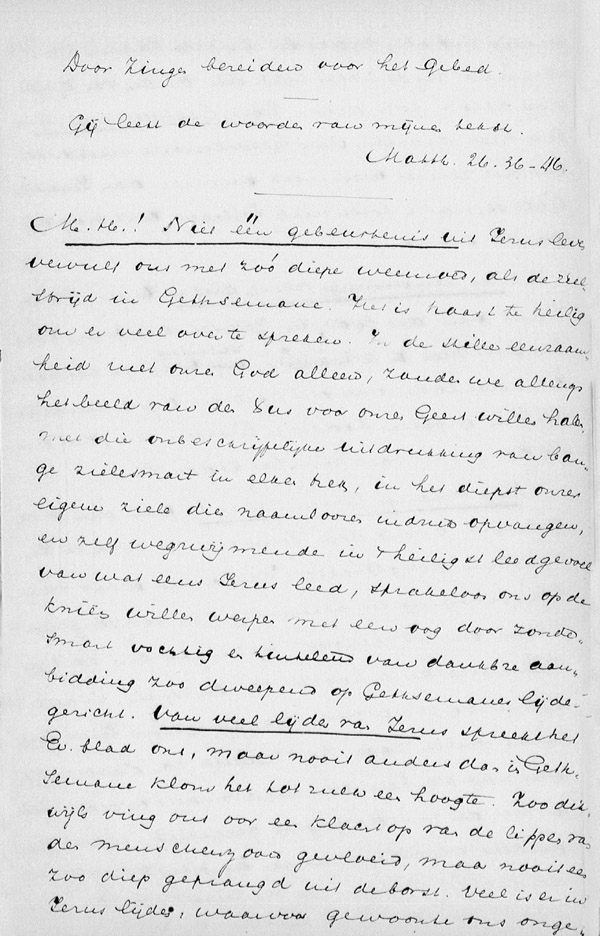 Door zingen bereiden voor het Gebed.
Gij leest de woorden van mijnen tekst.
Matth. 26. 36-46.
M. H.! Niet één gebeurtenis uit Jezus leven
vervult ons met zóó diepe weemoed, als de ziel
strijd in Gethsemane. Het is haast te heilig
om er veel over te spreken. In de stille eenzaam-
heid met onze God alleen, zouden we allengs
het beeld van den voor onze Geest willen halen
met die onbeschrijfelijke uitdrukking van ban-
ge zielesmart in elken trek, in het diepst onzer
eigene ziele die naamloozen indruk opvangen,
en zelf wegzwijmende in 't heiligst leedgevoel
van wat eens Jezus leed, sprakeloos ons op de
knieën willen werpen met een oog door zonde-
smart vochtig en tintelend van dankbre aan-
bidding zoo dweepend op Gethsemanes lijde-
gericht. Van veel lijden van Jezus spreekt het
Ev. blad ons, maar nooit anders dan in Geth-
semane klom het tot zulk een hoogte. Zoo dik-
wijls ving ons oor een klacht op van de lippen van
den menschenzoon gevloeid, maar nooit een
zoo diep geprangd uit de borst. Veel is er in
Jezus lijden, waarvoor gewoonte ons onge-